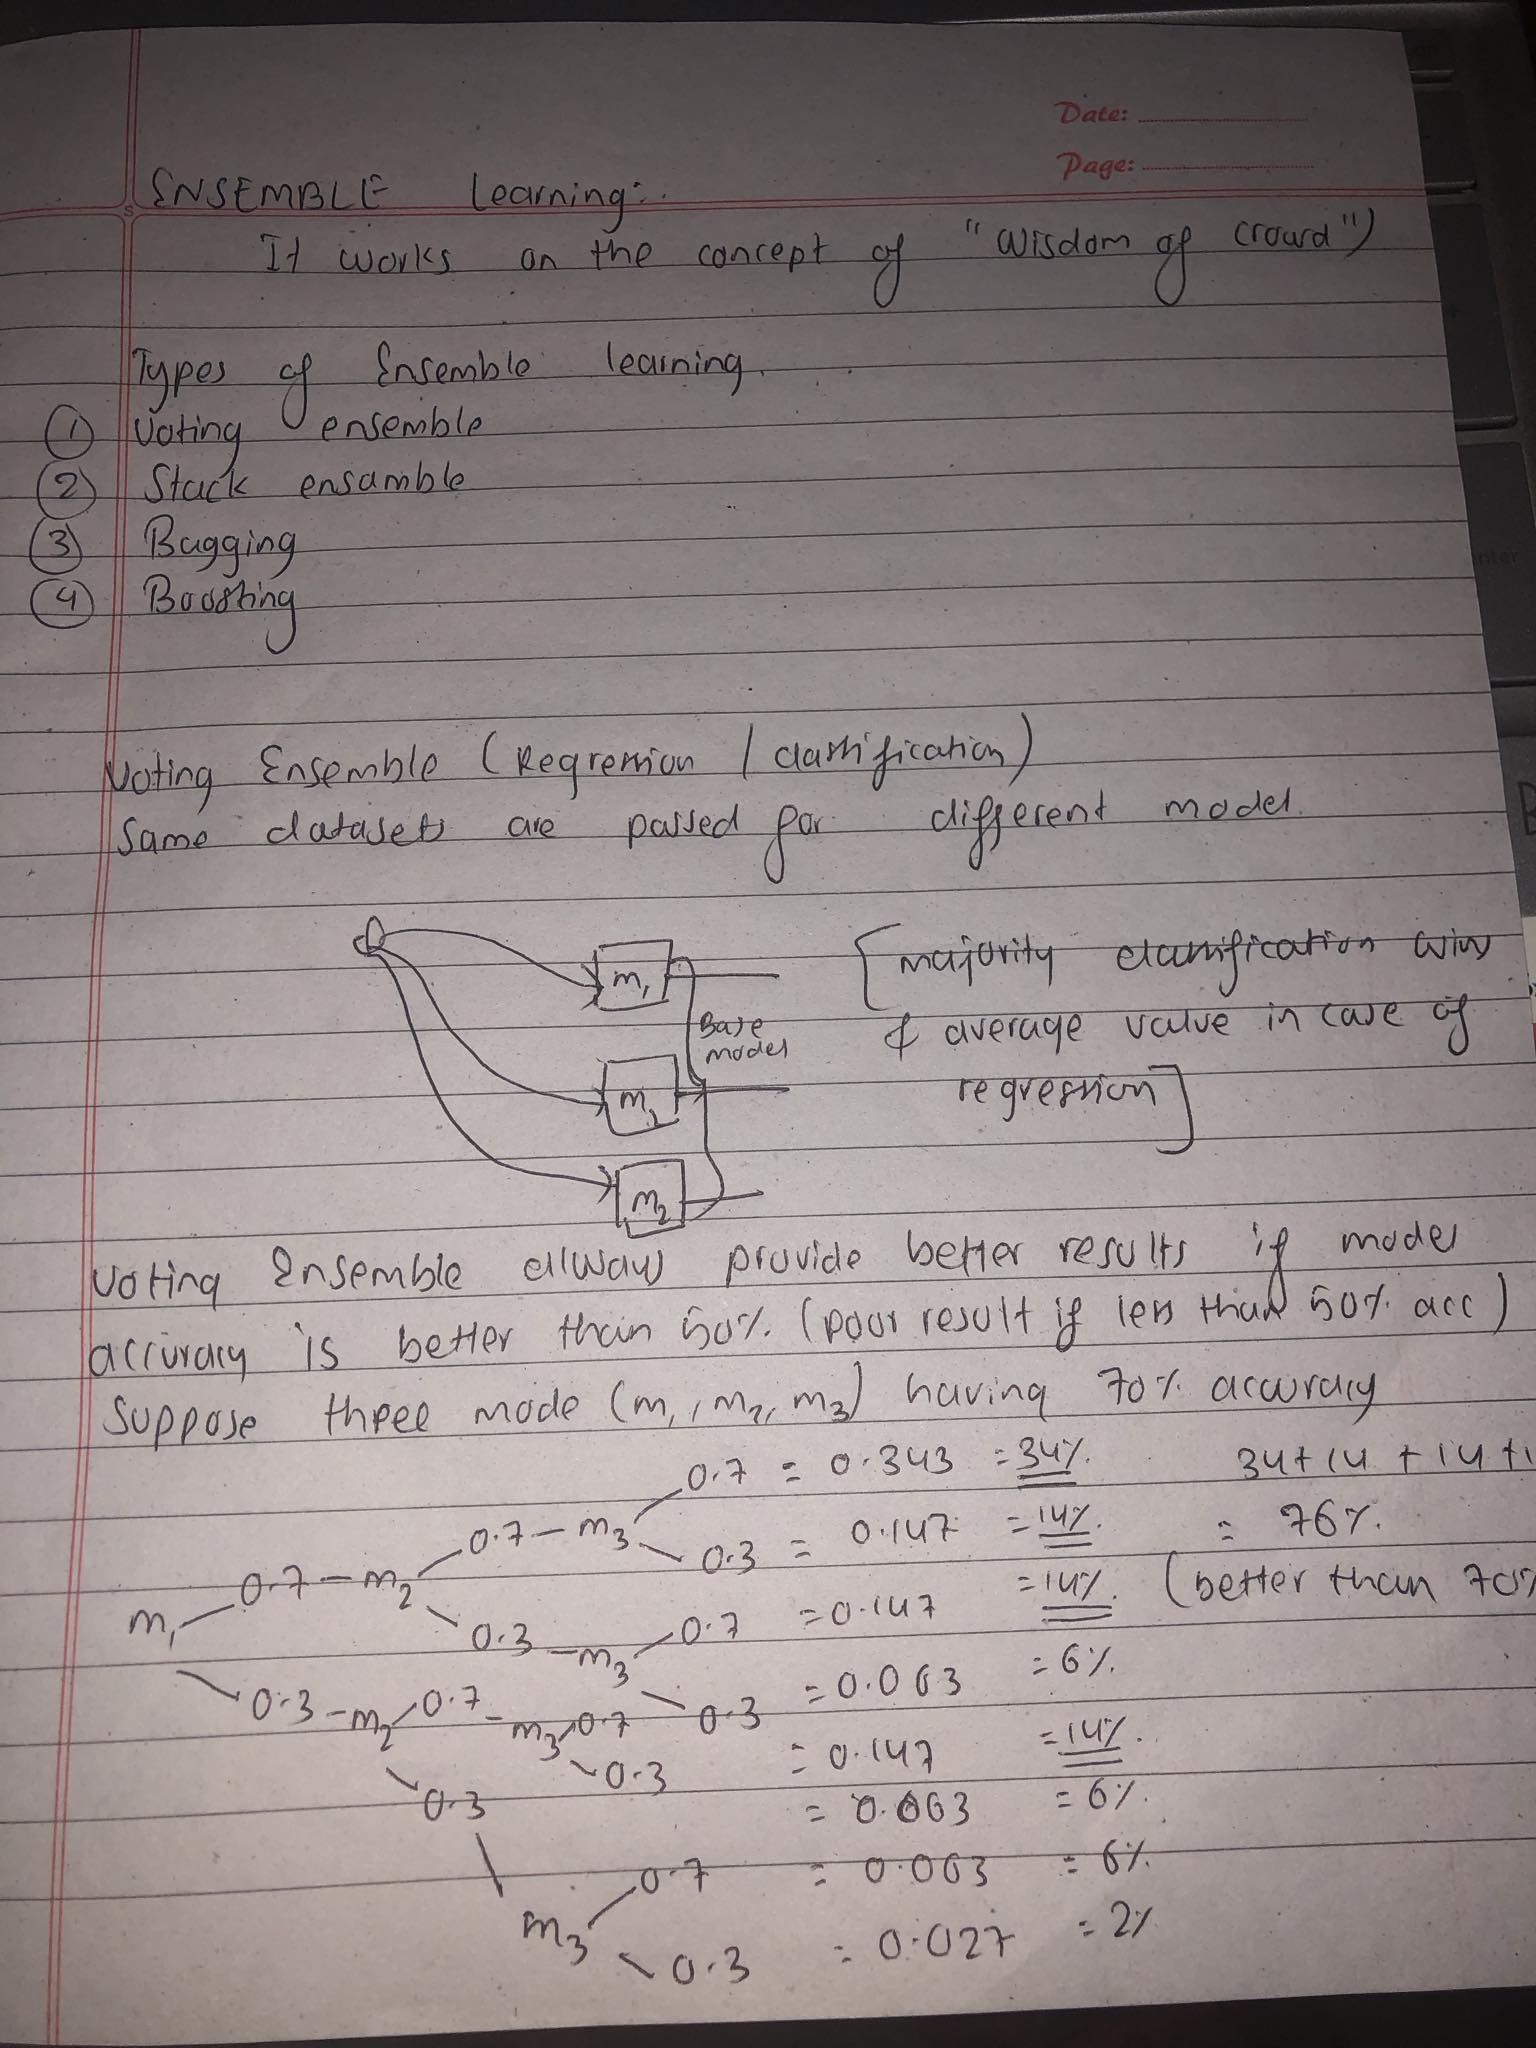 Date:
Page:
ENSEMBLE learning:
It works on the concept of "wisdom of crowd")
Types of Ensemble learning.
① Voting ensemble
② Stack ensamble
③ Bagging
④ Boosting
Voting Ensemble (Regression / classification)
Same datasets are passed for different model.
[majority classification wins
& average value in case of
regression]
m1
Base
model
m2
Voting Ensemble always provide better results if model
accuracy is better than 50%. (poor result if less than 50% acc)
Suppose three mode (m1, m2, m3) having 70% accuracy
0.7 = 0.343 = 34% 34+14+14+1
0.7 - m3 0.3 = 0.147 = 14% = 76%.
m1 0.7 - m2 0.3 - m3 0.7 = 0.147 = 14% (better than 70%
0.3 = 0.063 = 6%.
0.3 - m2 0.7 - m3 0.7 = 0.147 = 14%.
0.3 0.3 = 0.063 = 6%.
m3 0.7 = 0.063 = 6%.
0.3 = 0.027 = 2%